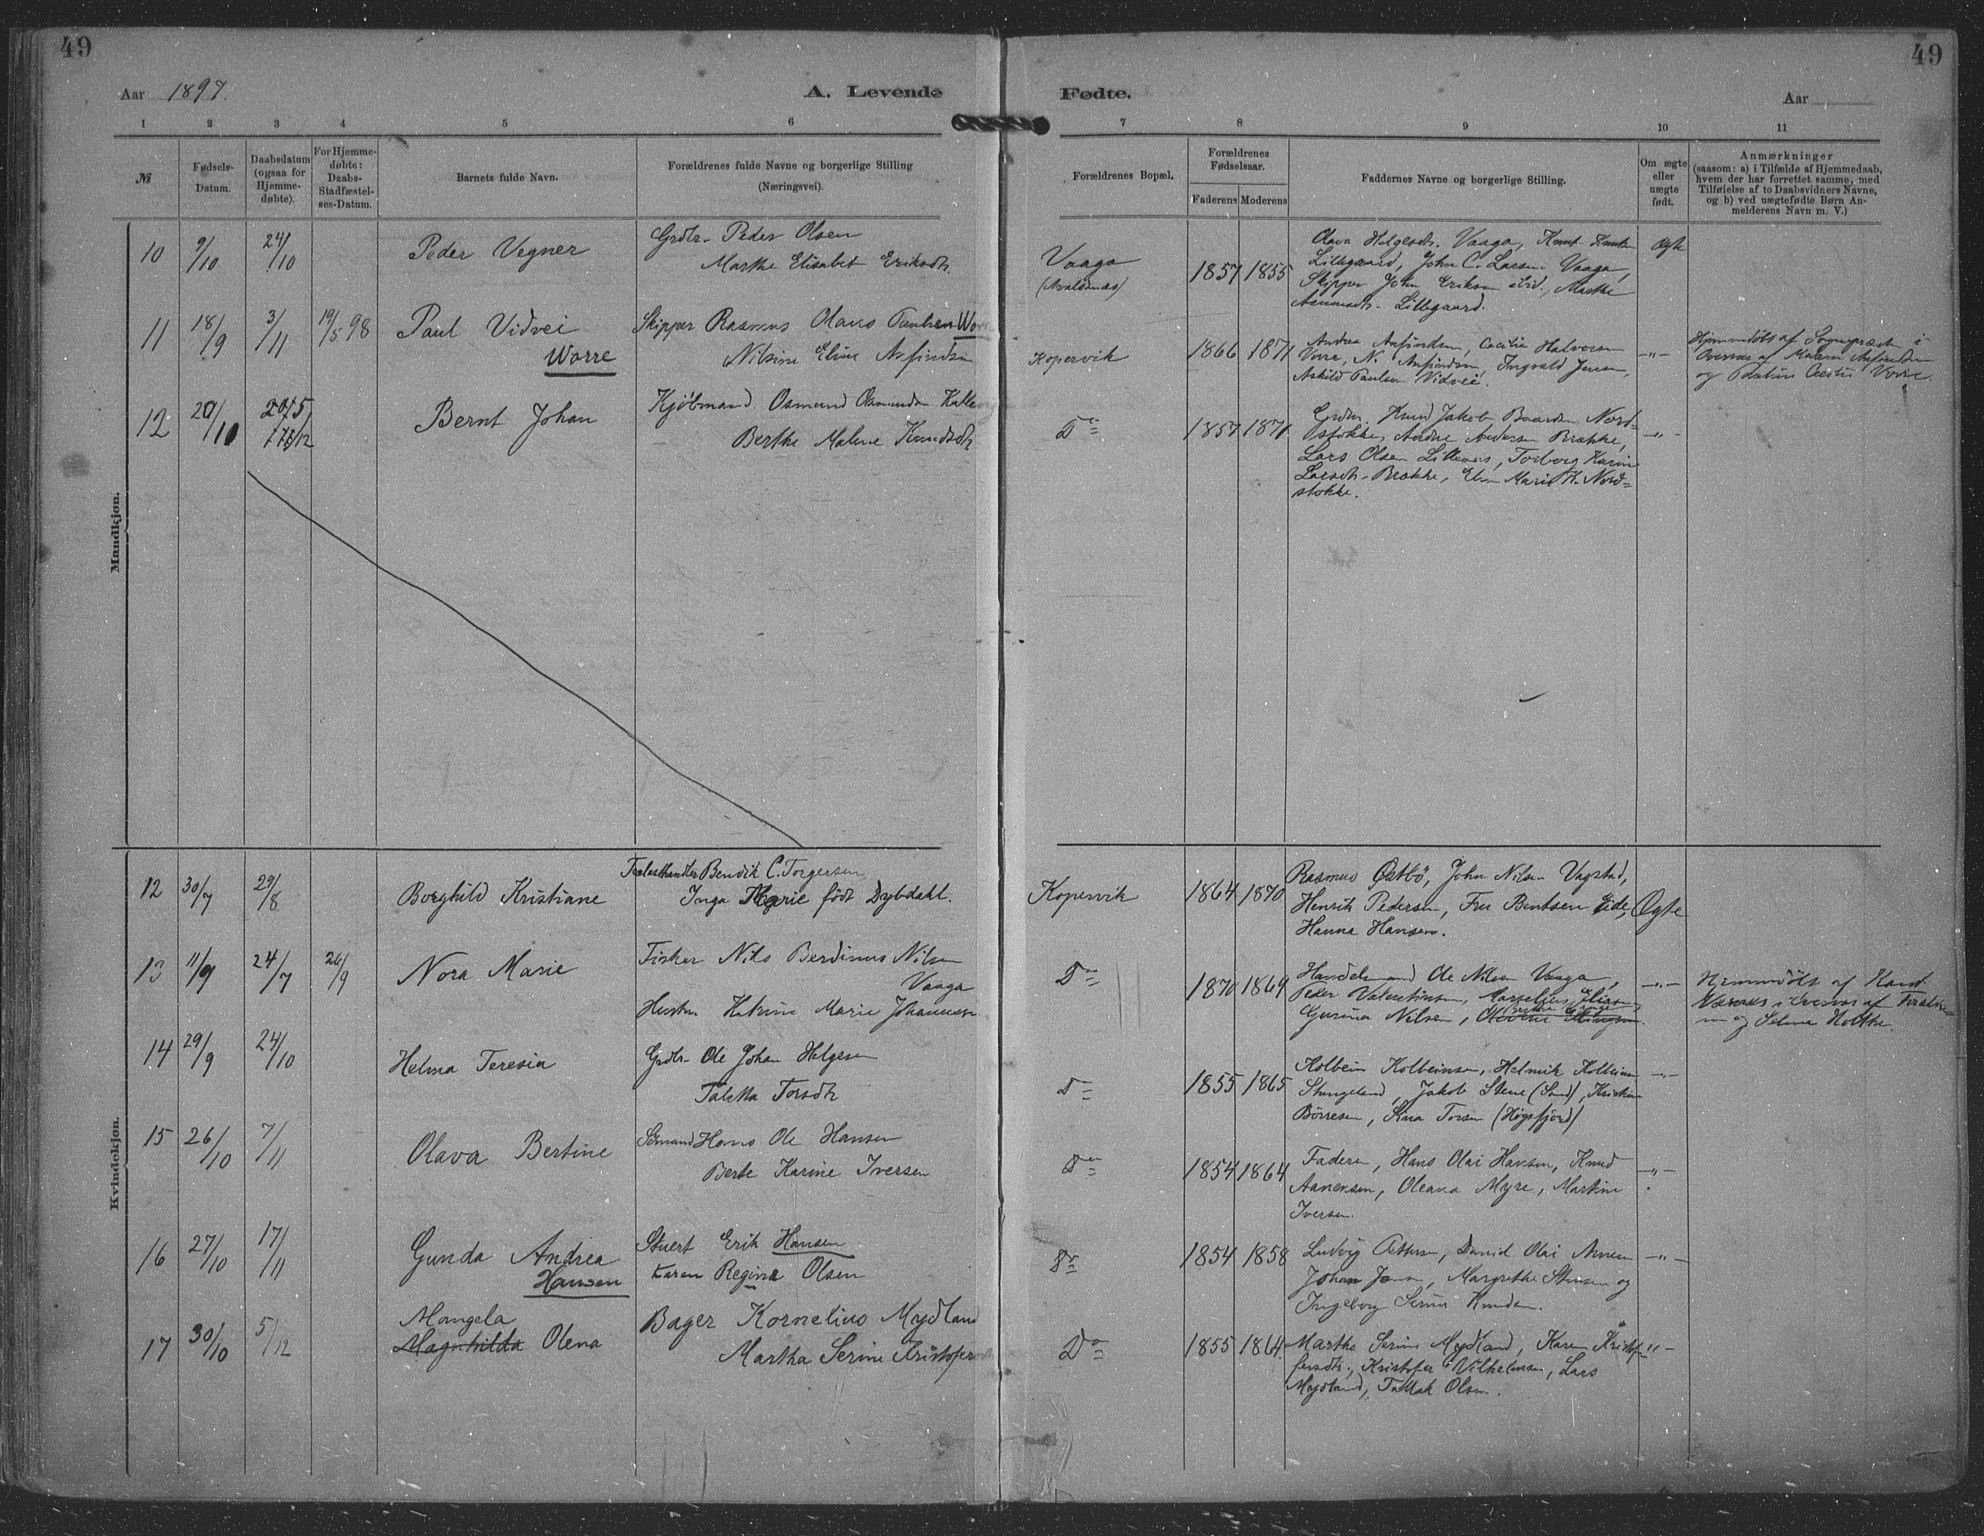 49
49
Aar 1897.
A. Levende
Fødte.
Aar
1 2 3 4 5 6 7 8 9 10 11
№
Fødsels-
Datum.
Daabsdatum
(ogsaa for
Hjemme-
døbte).
For Hjemme-
døbte:
Daabs-
Stadfæstel-
ses-Datum.
Barnets fulde Navn.
Forældrenes fulde Navne og borgerlige Stilling
(Næringsvei).
Forældrenes Bopæl.
Forældrenes
Fødselsaar.
Faderens Moderens
Faddernes Navne og borgerlige Stilling.
Om ægte
eller
uægte
født.
Anmærkninger
(saasom: a) i Tilfælde af Hjemmedaab,
hvem der har forrettet samme, med
Tilføielse af to Daabsvidners Navne,
og b) ved uægtefødte Børn An-
melderens Navn m. V.)
Mandkjøn.
10 9/10 24/10
Peder Vegner
Grdbr. Peder Olsen
Marthe Elisabet Eriksdtr.
Vaaga
(Avaldsnes)
1857 1855
Olava Helgesdtr. Vaaga, Knut
Lillegaard, John C. Larsen Vaaga,
Skipper John Eriksen ibid., Marthe
Lillegaard.
Ægte
11 18/9 3/11 19/5 98
Paul Vidvei
Worre
Skipper Rasmus Olaus Paulsen
Nilsine Eline Anfindsen
Kopervik
1866 1871
Andrea Anfindsen, Cecilie Halvorsen
Vorre, N. Anfindsen, Ingvald Jensen,
Askild Paulsen Vidvei.
-"-
Hjemmedøbt af Sogneprest i
af Anfindsen
og Vorre.
12 20/10
Bernt Johan
Kjøbmand Osmund Osmundsen
Berthe Malene Knudsdtr.
Do
1857 1871.
Knud Jakob Baardsen Nord-
stokke, Andre Andersen Brække,
Lars Olsen Lillenes, Torborg Karine
Larsdtr. Brække, Elen Marie Nord=
stokke.
-"-
Kvindekjøn.
12 30/7 29/8
Borghild Kristiane
Trælasthandler Bendik C. Torgersen
Inga Marie født Dybdahl.
Kopervik
1864 1870
Rasmus Østbø, John Nilsen Vagstad,
Henrik Pedersen, Fru Bentsen Eide,
Hanna Hansen.
Ægte
13 11/9 24/7 26/9
Nora Marie
Fisker Nils Berdinus Nilsen
Vaaga
Hustru Katrine Marie Johannesen
Do
1870 1869
Handelsmand Ole Nilsen Vaaga,
Peder Valentinsen, Marselius Eliasen
Gurina Nilsen,
-"-
Hjemmedøbt af
og Selma Holthe.
14 29/9 24/10
Helma Teresia
Grdbr. Ole Johan Helgesen
Talette Torsdtr.
Do
1855 1865
Kolbein Kolbeinsen, Helmik Kolbeinsen
Stangeland, Jakob Stene (Sand), Kristian
Børresen, Stina Torsen (Høgsfjord)
-"-
15 26/10 7/11
Olava Bertine
Sømand Hans Ole Hansen
Berte Karine Iversen
Do
1854 1864
Faderen, Hans Olai Hansen, Knud
Aanensen, Oleana Myre, Martine
Iversen.
-"-
16 27/10 17/11
Gunda Andrea
Hansen
Stuert Erik Hansen
Karen Regine Olsen
Do
1854 1858
Ludvig Pettersen, David Olai
Johan Jensen, Margrethe Stensen og
Ingeborg Serine Knudsen.
-"-
17 30/10 5/12
Mangela
Magnhilda Olena
Bager Kornelius Mydland
Martha Serine Kristofers
Do
1855 1864.
Marthe Serine Mydland, Karen Kristof-
fersdtr., Kristofer Vilhelmsen, Lars
Mydland, Tallak Olsen.
"-